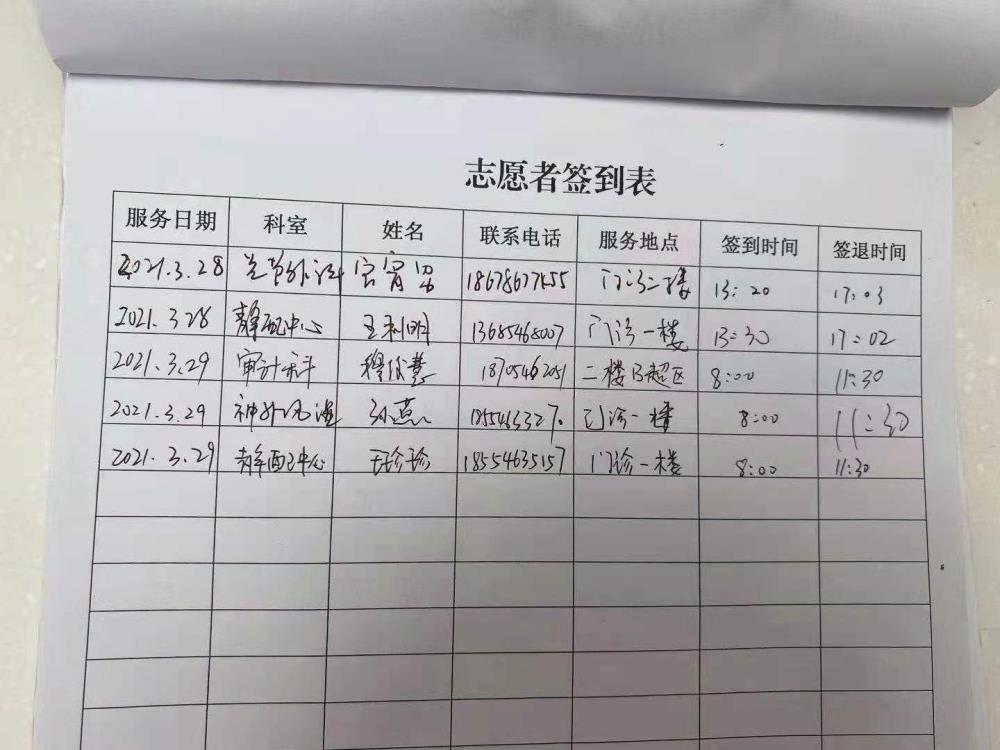 志愿者签到表
服务日期 科室 姓名 联系电话 服务地点 签到时间 签退时间
2021.3.28 关节外科 宫 门诊二楼 13:20 17:03
2021.3.28 静配中心 王利明 13685468007 门诊一楼 13:30 17:02
2021.3.29 审计科 穆 慧 二楼B超区 8:00 11:30
2021.3.29 神外 孙 门诊一楼 8:00 11:30
2021.3.29 静配中心 王珍珍 18554635157 门诊一楼 8:00 11:30